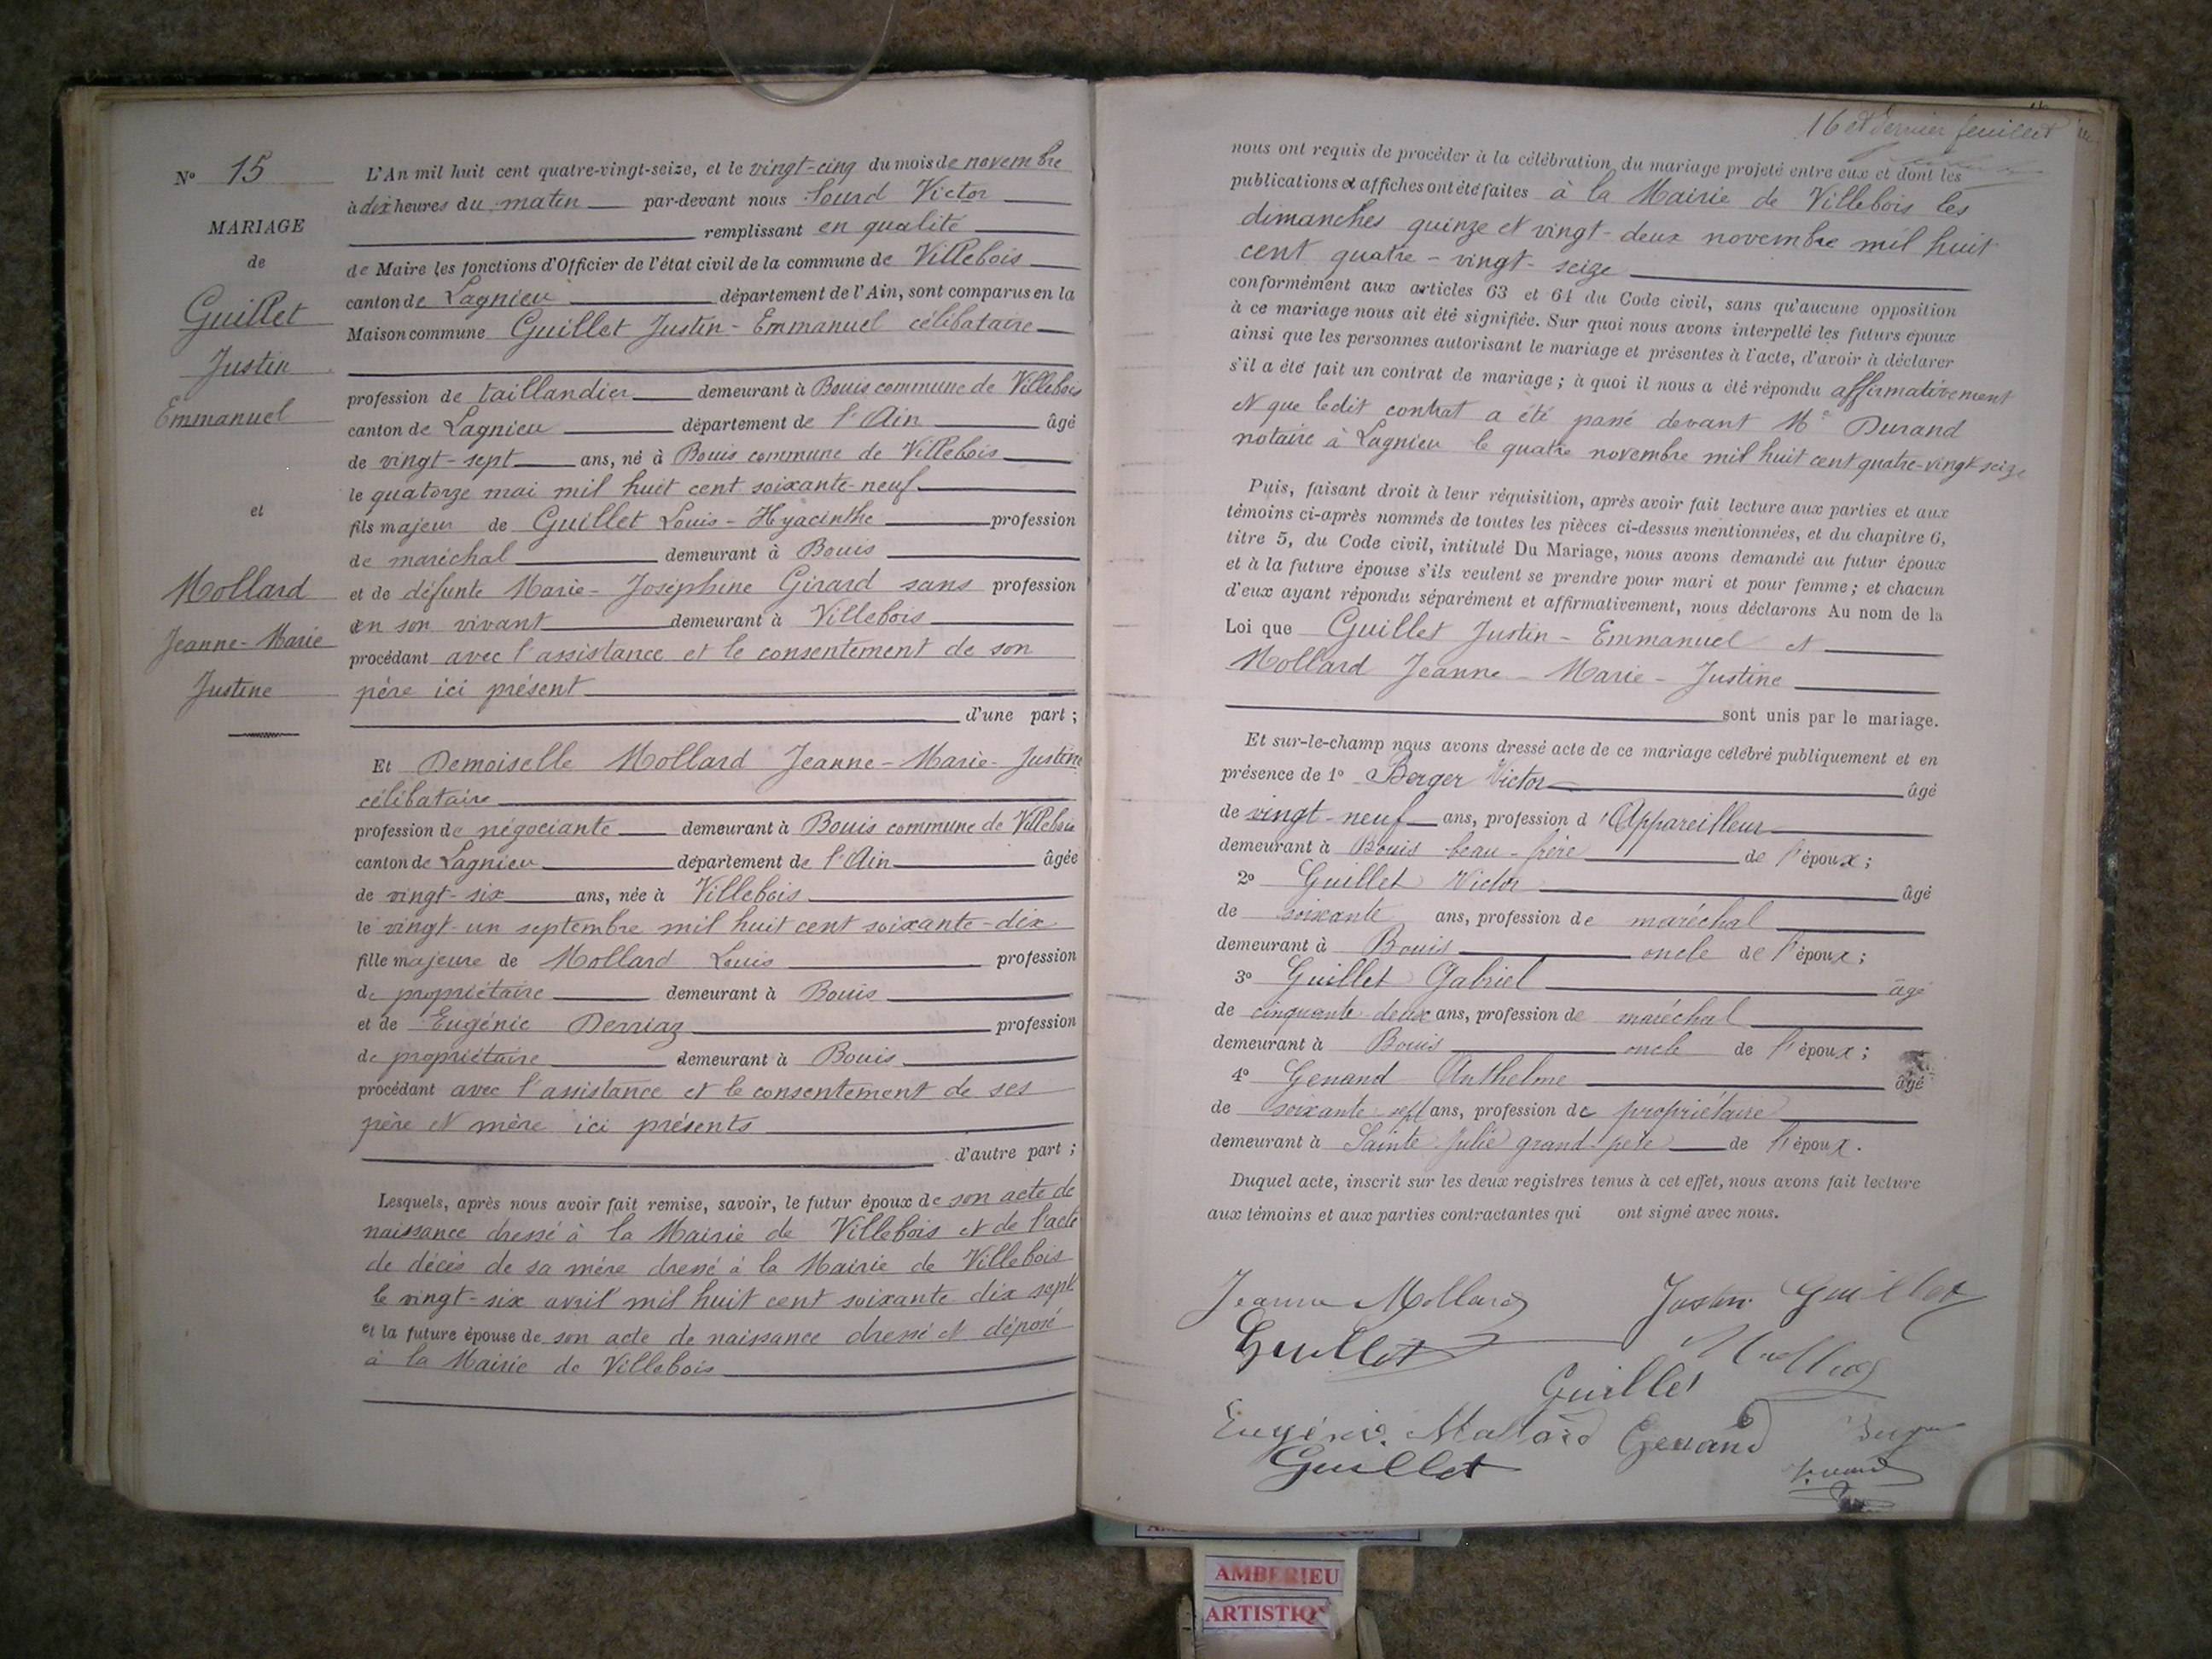 N° 15
MARIAGE
de
Guillet
Justin
Emmanuel
et
Mollard
Jeanne-Marie
Justine
L'An mil huit cent quatre-vingt-seize, et le vingt-cinq du mois de novembre
à dix heures du matin par-devant nous Sourd Victor
remplissant en qualité
de Maire les fonctions d'Officier de l'état civil de la commune de Villebois
canton de Lagnieu département de l'Ain, sont comparus en la
Maison commune Guillet Justin-Emmanuel célibataire
profession de taillandier demeurant à Bouis commune de Villebois
canton de Lagnieu département de l'Ain âgé
de vingt-sept ans, né à Bouis commune de Villebois
le quatorze mai mil huit cent soixante-neuf
fils majeur de Guillet Louis-Hyacinthe profession
de maréchal demeurant à Bouis
et de défunte Marie-Joséphine Girard sans profession
en son vivant demeurant à Villebois
procédant avec l'assistance et le consentement de son
père ici présent
d'une part ;
Et Demoiselle Mollard Jeanne-Marie-Justine
célibataire
profession de négociante demeurant à Bouis commune de Villebois
canton de Lagnieu département de l'Ain âgée
de vingt-six ans, née à Villebois
le vingt-un septembre mil huit cent soixante-dix
fille majeure de Mollard Louis profession
de propriétaire demeurant à Bouis
et de Eugénie Derriaz profession
de propriétaire demeurant à Bouis
procédant avec l'assistance et le consentement de ses
père et mère ici présents
d'autre part ;
Lesquels, après nous avoir fait remise, savoir, le futur époux de son acte de
naissance dressé à la Mairie de Villebois et de l'acte
de décès de sa mère dressé à la Mairie de Villebois
le vingt-six avril mil huit cent soixante dix sept
et la future épouse de son acte de naissance dressé et déposé
à la Mairie de Villebois
16 et dernier feuillet
nous ont requis de procéder à la célébration du mariage projeté entre eux et dont les
publications et affiches ont été faites à la Mairie de Villebois les
dimanches quinze et vingt-deux novembre mil huit
cent quatre-vingt-seize
conformément aux articles 63 et 64 du Code civil, sans qu'aucune opposition
à ce mariage nous ait été signifiée. Sur quoi nous avons interpellé les futurs époux
ainsi que les personnes autorisant le mariage et présentes à l'acte, d'avoir à déclarer
s'il a été fait un contrat de mariage ; à quoi il nous a été répondu affirmativement
et que ledit contrat a été passé devant Me Durand
notaire à Lagnieu le quatre novembre mil huit cent quatre-vingt-seize
Puis, faisant droit à leur réquisition, après avoir fait lecture aux parties et aux
témoins ci-après nommés de toutes les pièces ci-dessus mentionnées, et du chapitre 6,
titre 5, du Code civil, intitulé Du Mariage, nous avons demandé au futur époux
et à la future épouse s'ils veulent se prendre pour mari et pour femme ; et chacun
d'eux ayant répondu séparément et affirmativement, nous déclarons Au nom de la
Loi que Guillet Justin-Emmanuel et
Mollard Jeanne-Marie-Justine
sont unis par le mariage.
Et sur-le-champ nous avons dressé acte de ce mariage célébré publiquement et en
présence de 1° Berger Victor âgé
de vingt-neuf ans, profession d'Appareilleur
demeurant à Bouis beau-frère de l'époux ;
2° Guillet Victor âgé
de soixante ans, profession de maréchal
demeurant à Bouis oncle de l'époux ;
3° Guillet Gabriel âgé
de cinquante-deux ans, profession de maréchal
demeurant à Bouis oncle de l'époux ;
4° Genand Anthelme âgé
de soixante sept ans, profession de propriétaire
demeurant à Sainte-Julie grand-père de l'époux.
Duquel acte, inscrit sur les deux registres tenus à cet effet, nous avons fait lecture
aux témoins et aux parties contractantes qui ont signé avec nous.
Jeanne Mollard Justin Guillet
Guillet
Guillet
Eugénie Mollard Genand Berger
Guillet
AMBERIEU
ARTISTIQ